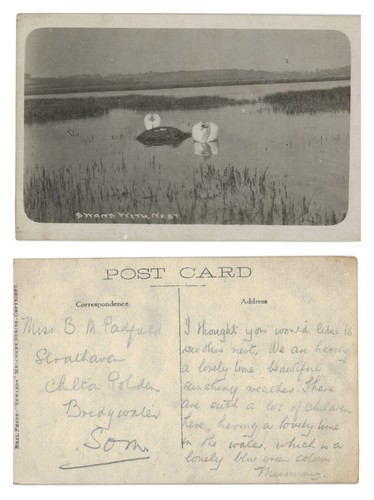 SWANS WITH NEST
POST CARD
Correspondence.
Address
Miss B. M. Padfield
Strathaven
Chilton Polden
Bridgwater
Som.
I thought you would like to
see this nest, We are having
a lovely time, beautiful
sunshiny weather. There
are such a lot of children
here, having a lovely time
in the water, which is a
lovely blue green colour
Mummy.